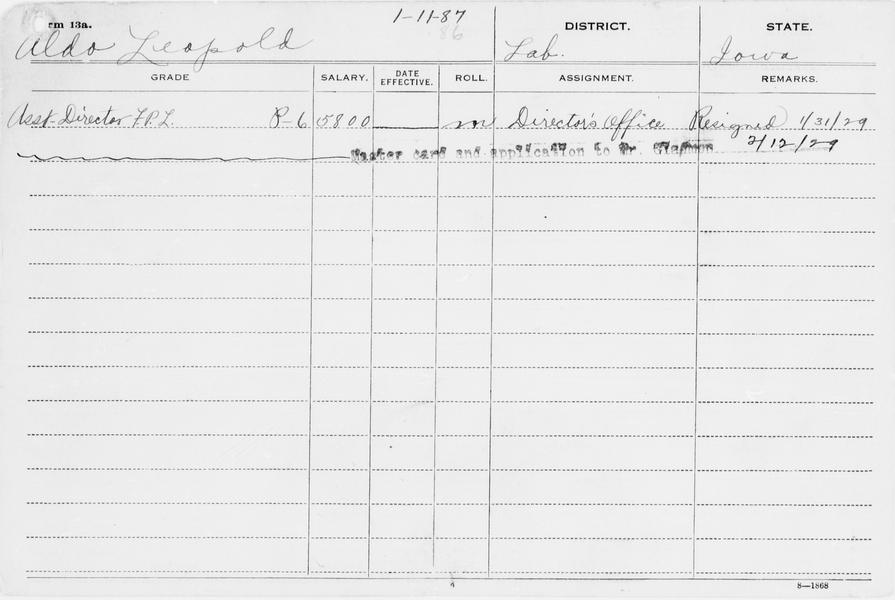 rm 13a.
1-11-87
86
DISTRICT.
STATE.
Aldo Leopold
Lab.
Iowa
GRADE SALARY. DATE EFFECTIVE. ROLL. ASSIGNMENT. REMARKS.
Asst. Director F.P.L. P-6 5800 m Director's Office Resigned 1/31/29
Master card and application to Mr. 2/12/29
8—1868